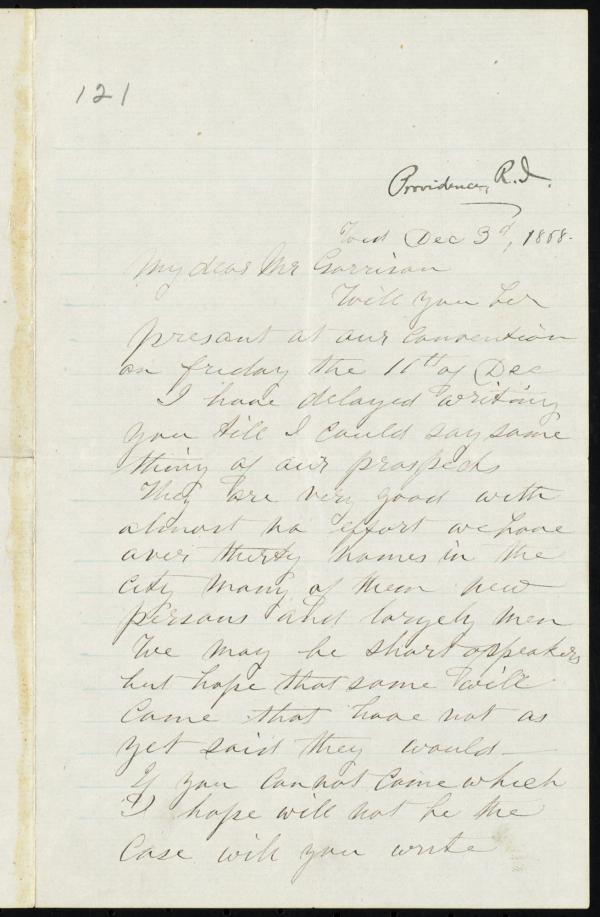 121
Providence, R.I.
Wed Dec 3d, 1868.
My dear Mr Garrison
Will you be
present at our convention
on friday the 11th of Dec
I have delayed writing
you till I could say some
thing of our prospects
They are very good with
almost no effort we have
over thirty names in the
city many of them new
persons and largely men
We may be short of speakers
but hope that some will
come that have not as
yet said they would—
If you cannot come which
I hope will not be the
case will you write